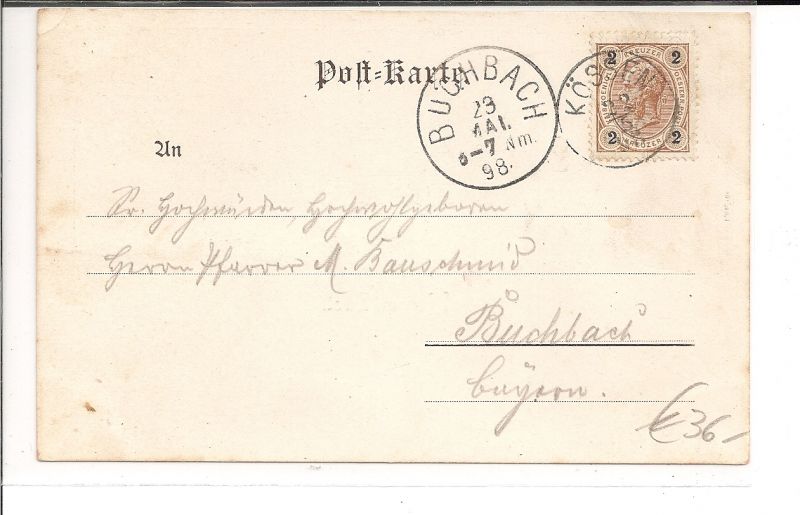 Post-Karte
BUCHBACH
23
MAI.
6-7 Nm.
98.
KÖSSEN
2 KREUZER 2
2 KREUZER 2
An
Sr. Hochwürden, Hochwohlgeboren
Herrn Pfarrer M. Bauschmid
Buchbach
Bayern.
€ 36-